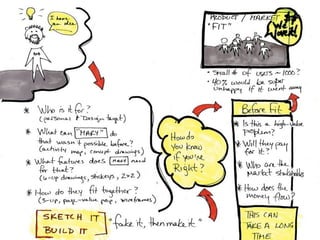 I have an idea
PRODUCT / MARKET
"FIT"
we love it!
• Small # of users ~ 1000?
• 40% would be super
unhappy if it went away
* Who is it for?
(personas & design target)
* What can "MARY" do
that wasn't possible before?
(activity map, concept drawings)
* What features does need
for that?
* How do they fit together?
SKETCH IT
BUILD IT
"fake it, then make it"
How do
you know
if you're
Right?
Before Fit
* Is this a high-value
problem?
* Will they pay
for it?
* Who are the
market
* How does the
money flow?
THIS CAN
TAKE A LONG
TIME